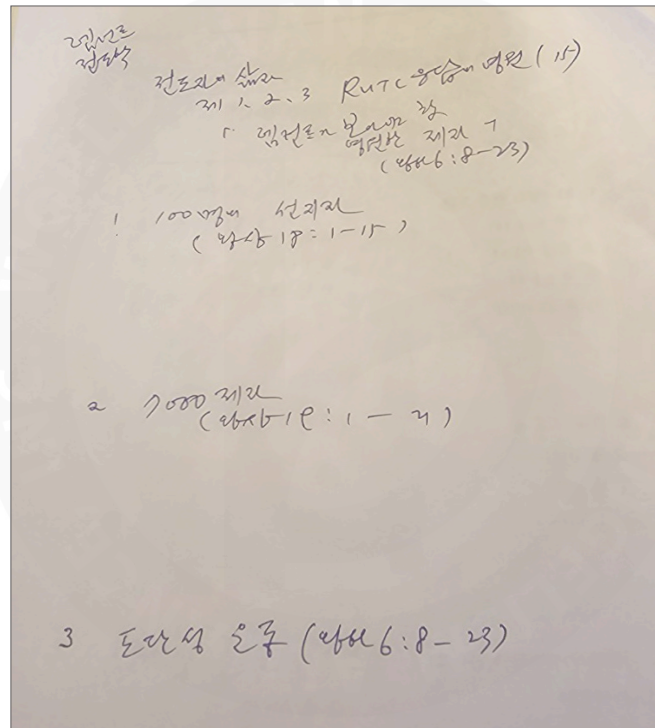 렘넌트
전도학
전도자의 삶과
제 1, 2, 3 RUTC 응답의 영원 (15)
「 렘넌트가 보아야 할
영원한 제자 」
(왕하6:8-23)
1 100명의 선지자
(왕상18:1-15)
2 7000 제자
(왕상19:1-21)
3 도단성 운동 (왕하6:8-23)